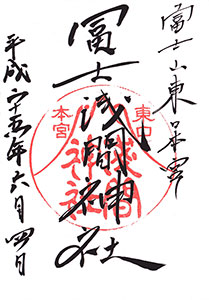 冨士山東口本宮
冨士浅間神社
平成二十五年六月四日
東口
本宮
浅間
神社